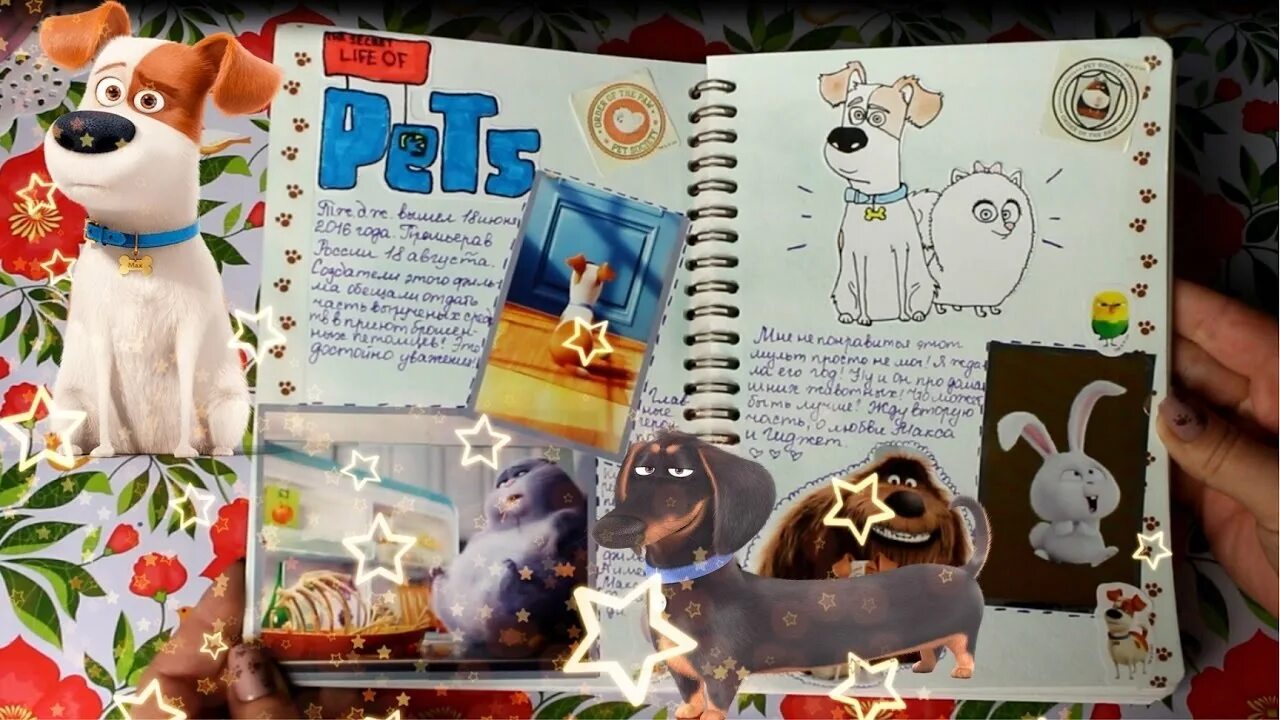 THE SECRET
LIFE OF
PeTs
ORDER OF THE PAW
PET SOCIETY
вышел 18 июня
2016 года. Премьера в
России 18 августа.
Создатели этого филь
ма обещали отдать
часть вырученых сред
тв в приют брошен-
ных петомцев! Это
достойно уважения!
Глав
ные
герои
Мне не понравится этот
мульт просто не мог! Я ждa
ла его год! Ну и он про дома
шних животных! Что может
быть лучше? Жду вторую
часть, о любви Макса
и Гиджет.
PET SOCIETY
ORDER OF THE PAW
Max